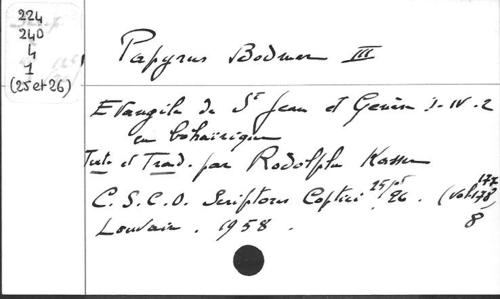 224
240
4
1
(25 et 26)
Papyrus Bodmer III
Evangile de St Jean et Genèse I-IV-2
en bohaïrique
Texte et Trad. par Rodolphe Kasser
C. S. C. O. Scriptores Coptici 25/26. (Vol. 177, 178)
Louvain. 1958. 8